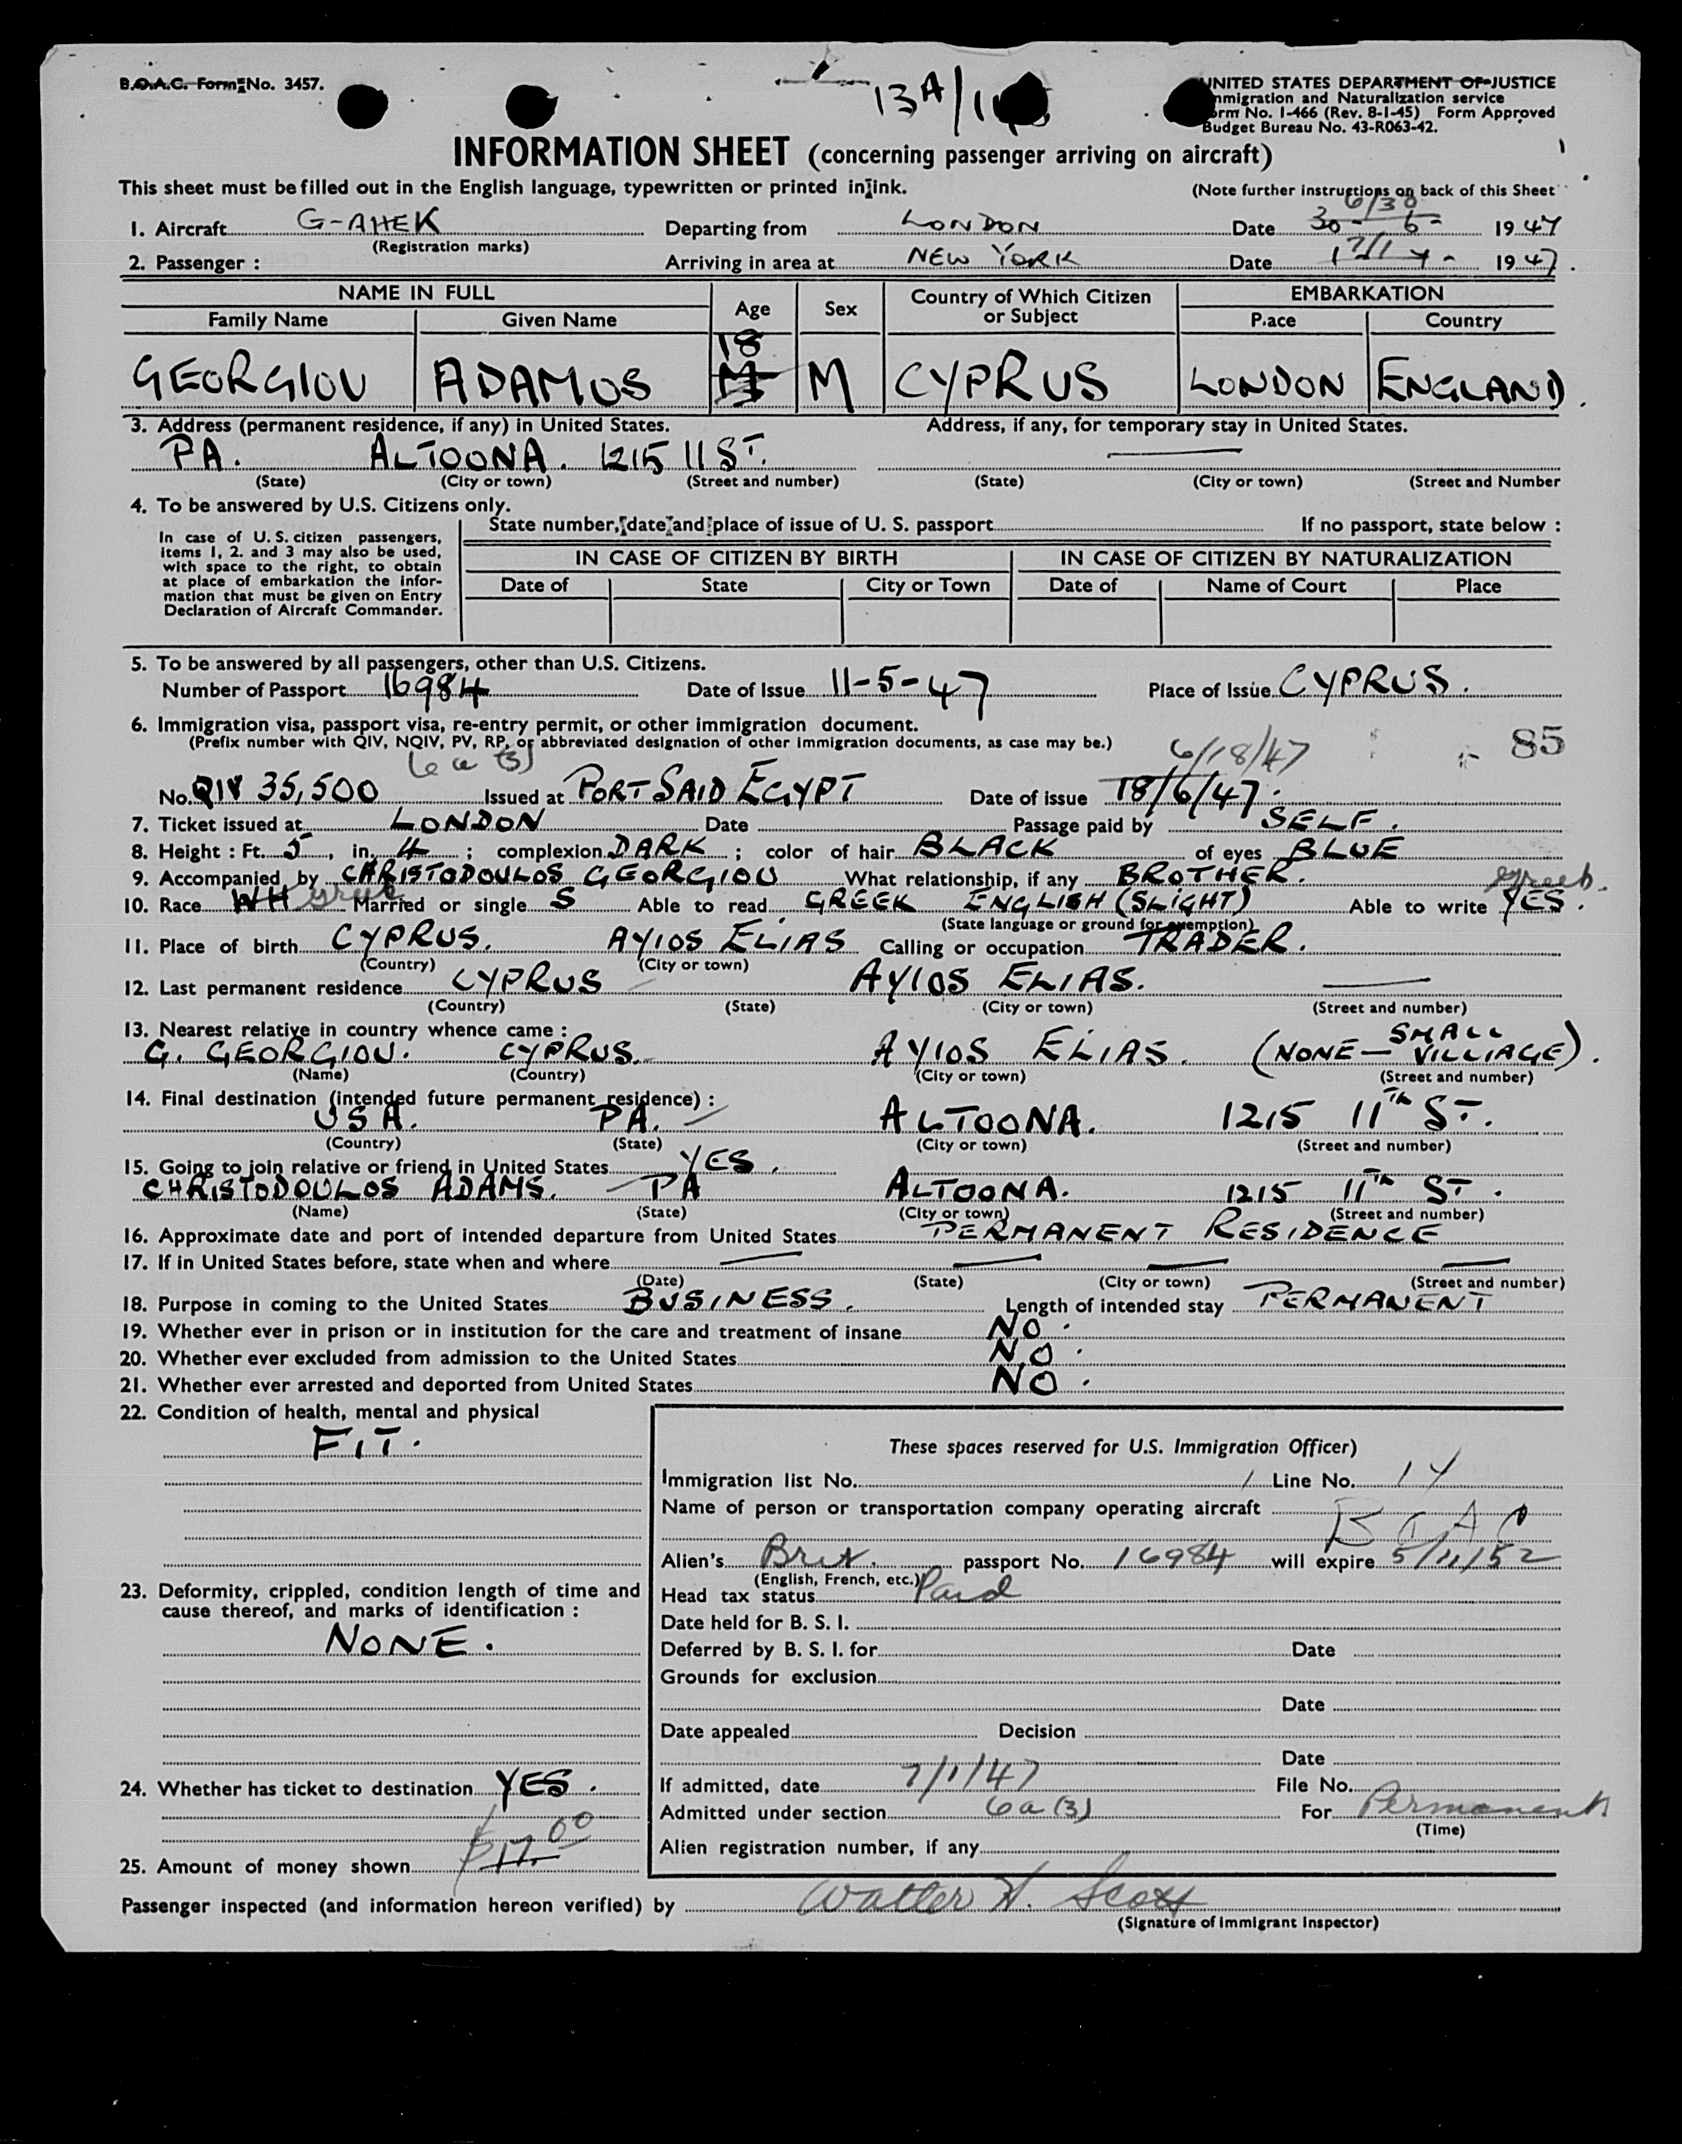 B.O.A.C. Form No. 3457.
13A/
UNITED STATES DEPARTMENT OF JUSTICE
Immigration and Naturalization service
Form No. I-466 (Rev. 8-1-45) Form Approved
Budget Bureau No. 43-R063-42.
INFORMATION SHEET (concerning passenger arriving on aircraft)
This sheet must be filled out in the English language, typewritten or printed in ink. (Note further instructions on back of this Sheet
6/30
1. Aircraft G-AHEK Departing from LONDON Date 30-6- 1947
(Registration marks)
7/1
2. Passenger : Arriving in area at NEW YORK Date 1 7- 1947.
NAME IN FULL Age Sex Country of Which Citizen or Subject EMBARKATION
Family Name Given Name P.ace Country
18
GEORGIOU ADAMOS M CYPRUS LONDON ENGLAND.
3. Address (permanent residence, if any) in United States. Address, if any, for temporary stay in United States.
PA. ALTOONA. 1215 11 ST.
(State) (City or town) (Street and number) (State) (City or town) (Street and Number
4. To be answered by U.S. Citizens only.
State number, date and place of issue of U. S. passport If no passport, state below :
In case of U. S. citizen passengers,
items 1, 2. and 3 may also be used,
with space to the right, to obtain
at place of embarkation the infor-
mation that must be given on Entry
Declaration of Aircraft Commander.
IN CASE OF CITIZEN BY BIRTH IN CASE OF CITIZEN BY NATURALIZATION
Date of State City or Town Date of Name of Court Place
5. To be answered by all passengers, other than U.S. Citizens.
Number of Passport 16984 Date of Issue 11-5-47 Place of Issue CYPRUS.
6. Immigration visa, passport visa, re-entry permit, or other immigration document.
(Prefix number with QIV, NQIV, PV, RP, or abbreviated designation of other immigration documents, as case may be.)
6 a (3) 6/18/47 85
No. QIV 35,500 Issued at PORT SAID EGYPT Date of issue 18/6/47.
7. Ticket issued at LONDON Date Passage paid by SELF.
8. Height : Ft. 5, in. 4 ; complexion DARK ; color of hair BLACK of eyes BLUE
9. Accompanied by CHRISTODOULOS GEORGIOU What relationship, if any BROTHER.
greek
10. Race WH greek Married or single S Able to read GREEK ENGLISH (SLIGHT) Able to write YES.
(State language or ground for exemption)
11. Place of birth CYPRUS. AYIOS ELIAS Calling or occupation TRADER.
(Country) (City or town)
12. Last permanent residence CYPRUS AYIOS ELIAS.
(Country) (State) (City or town) (Street and number)
13. Nearest relative in country whence came :
G. GEORGIOU. CYPRUS. AYIOS ELIAS. (NONE — SMALL VILLIAGE).
(Name) (Country) (City or town) (Street and number)
14. Final destination (intended future permanent residence) :
USA. PA. ALTOONA. 1215 11TH ST.
(Country) (State) (City or town) (Street and number)
15. Going to join relative or friend in United States YES.
CHRISTODOULOS ADAMS. PA ALTOONA. 1215 11TH ST.
(Name) (State) (City or town) (Street and number)
16. Approximate date and port of intended departure from United States PERMANENT RESIDENCE
17. If in United States before, state when and where
(Date) (State) (City or town) (Street and number)
18. Purpose in coming to the United States BUSINESS. Length of intended stay PERMANENT
19. Whether ever in prison or in institution for the care and treatment of insane NO.
20. Whether ever excluded from admission to the United States NO.
21. Whether ever arrested and deported from United States NO.
22. Condition of health, mental and physical
FIT.
23. Deformity, crippled, condition length of time and
cause thereof, and marks of identification :
NONE.
24. Whether has ticket to destination YES.
25. Amount of money shown $17.00
These spaces reserved for U.S. Immigration Officer)
Immigration list No. 1 Line No. 14
Name of person or transportation company operating aircraft
B O A C
Alien's Brit. passport No. 16984 will expire 5/11/52
(English, French, etc.)
Head tax status Paid
Date held for B. S. I.
Deferred by B. S. I. for Date
Grounds for exclusion
Date
Date appealed Decision
Date
If admitted, date 7/1/47 File No.
Admitted under section 6a(3) For Permanent
(Time)
Alien registration number, if any
Passenger inspected (and information hereon verified) by Walter H. Scott
(Signature of Immigrant Inspector)